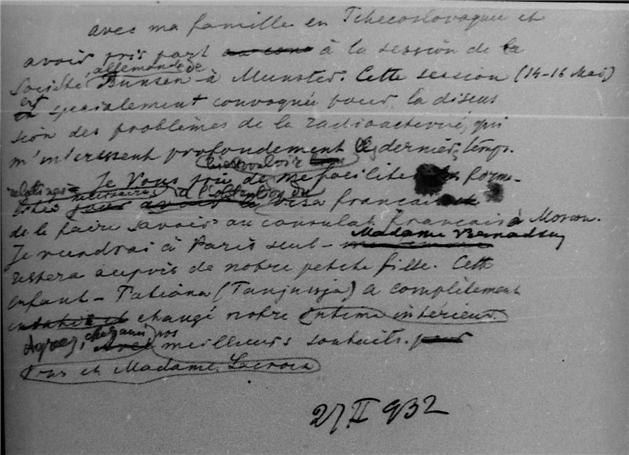 avec ma famille en Tchecoslovaquie et
avoir pris part à la session de la
Société allemande de Bunsen à Munster. Cette session (14-16 Mai)
est specialement convoquée pour la discus
sion des problèmes de la radioactivité, qui
m'interessent profondement les derniers temps.
Je vous prie de bien vouloir me faciliter les forma-
lités relatives à l'obtention du visa français
de le faire savoir au consulat français à Moscou.
Je viendrai à Paris seul - Madame Vernadsky
restera auprès de notre petite fille. Cette
enfant - Tatiana (Tanjusja) a complètement
changé notre intérieur
Agréez, cher ami, nos meilleurs souhaits.
et Madame Lacroix
27 II 932